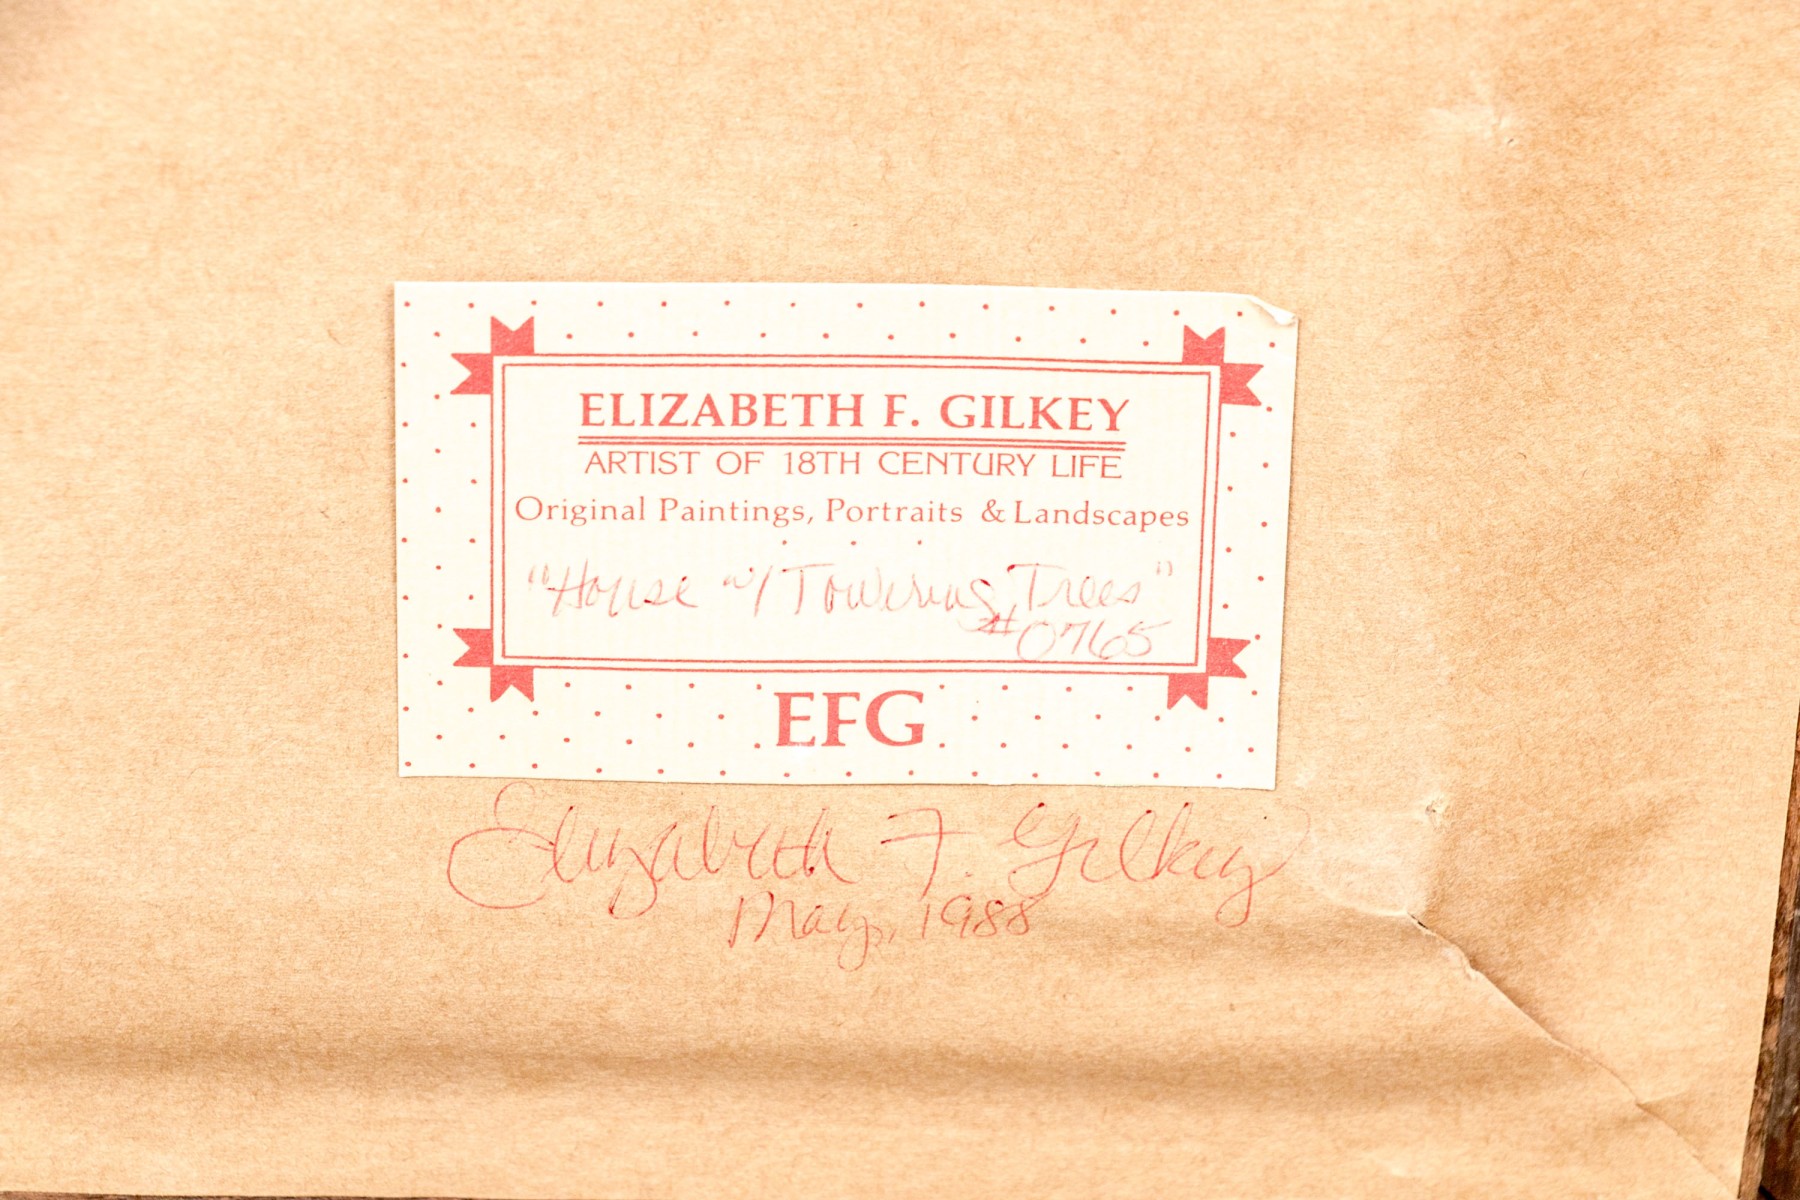 ELIZABETH F. GILKEY
ARTIST OF 18TH CENTURY LIFE
Original Paintings, Portraits & Landscapes
"House w/ Towering Trees"
#0765
EFG
Elizabeth F. Gilkey
May, 1988